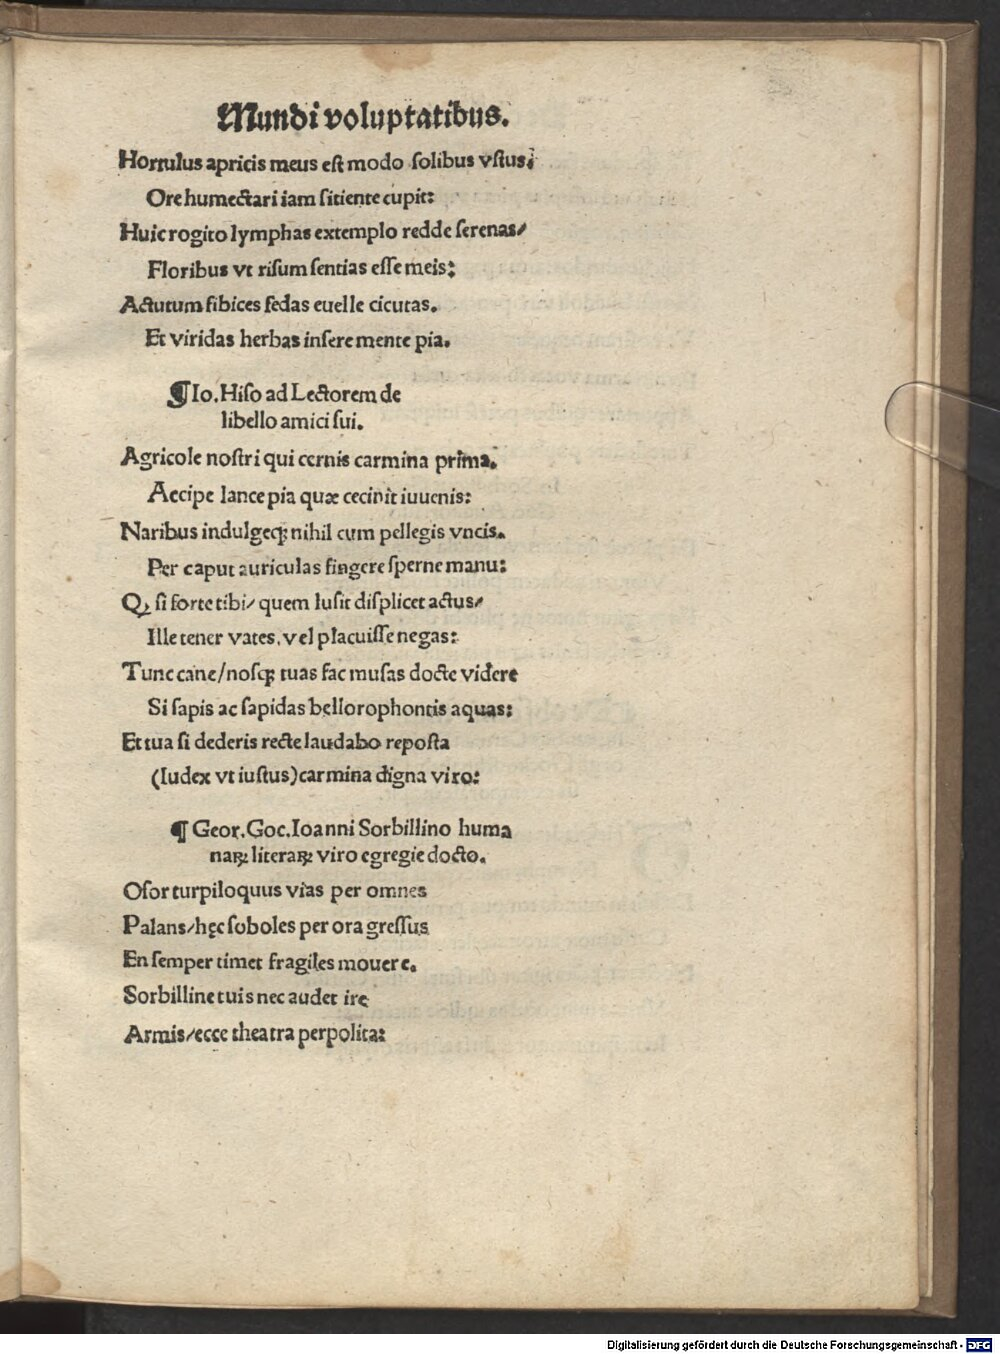 Mundi voluptatibus.
Hortulus apricis meus est modo solibus vstus:
Ore humectari iam sitiente cupit:
Huic rogito lymphas extemplo redde serenas/
Floribus vt risum sentias esse meis:
Actutum sibices fedas euelle cicutas.
Et viridas herbas insere mente pia.
¶ Io. Hiso ad Lectorem de
libello amici sui.
Agricole nostri qui cernis carmina prima.
Accipe lance pia quæ cecinit iuuenis:
Naribus indulgeqꝫ nihil cum pellegis vncis.
Per caput auriculas fingere sperne manu:
Qꝫ si forte tibi/ quem lusit displicet actus/
Ille tener vates, vel placuisse negas:
Tunc cane/nosqꝫ tuas fac musas docte videre
Si sapis ac sapidas bellorophontis aquas:
Et tua si dederis recte laudabo reposta
(Iudex vt iustus) carmina digna viro:
¶ Geor. Goc. Ioanni Sorbillino huma
naꝝ literaꝝ viro egregie docto.
Osor turpiloquus vias per omnes
Palans/hęc soboles per ora gressus
En semper timet fragiles mouere.
Sorbilline tuis nec audet ire
Armis/ecce theatra perpolita:
Digitalisierung gefördert durch die Deutsche Forschungsgemeinschaft - DFG